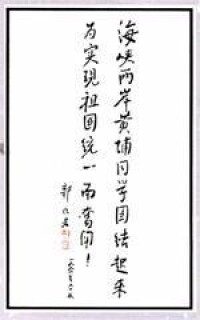 海峡两岸黄埔同学团结起来
为实现祖国统一而奋闘！